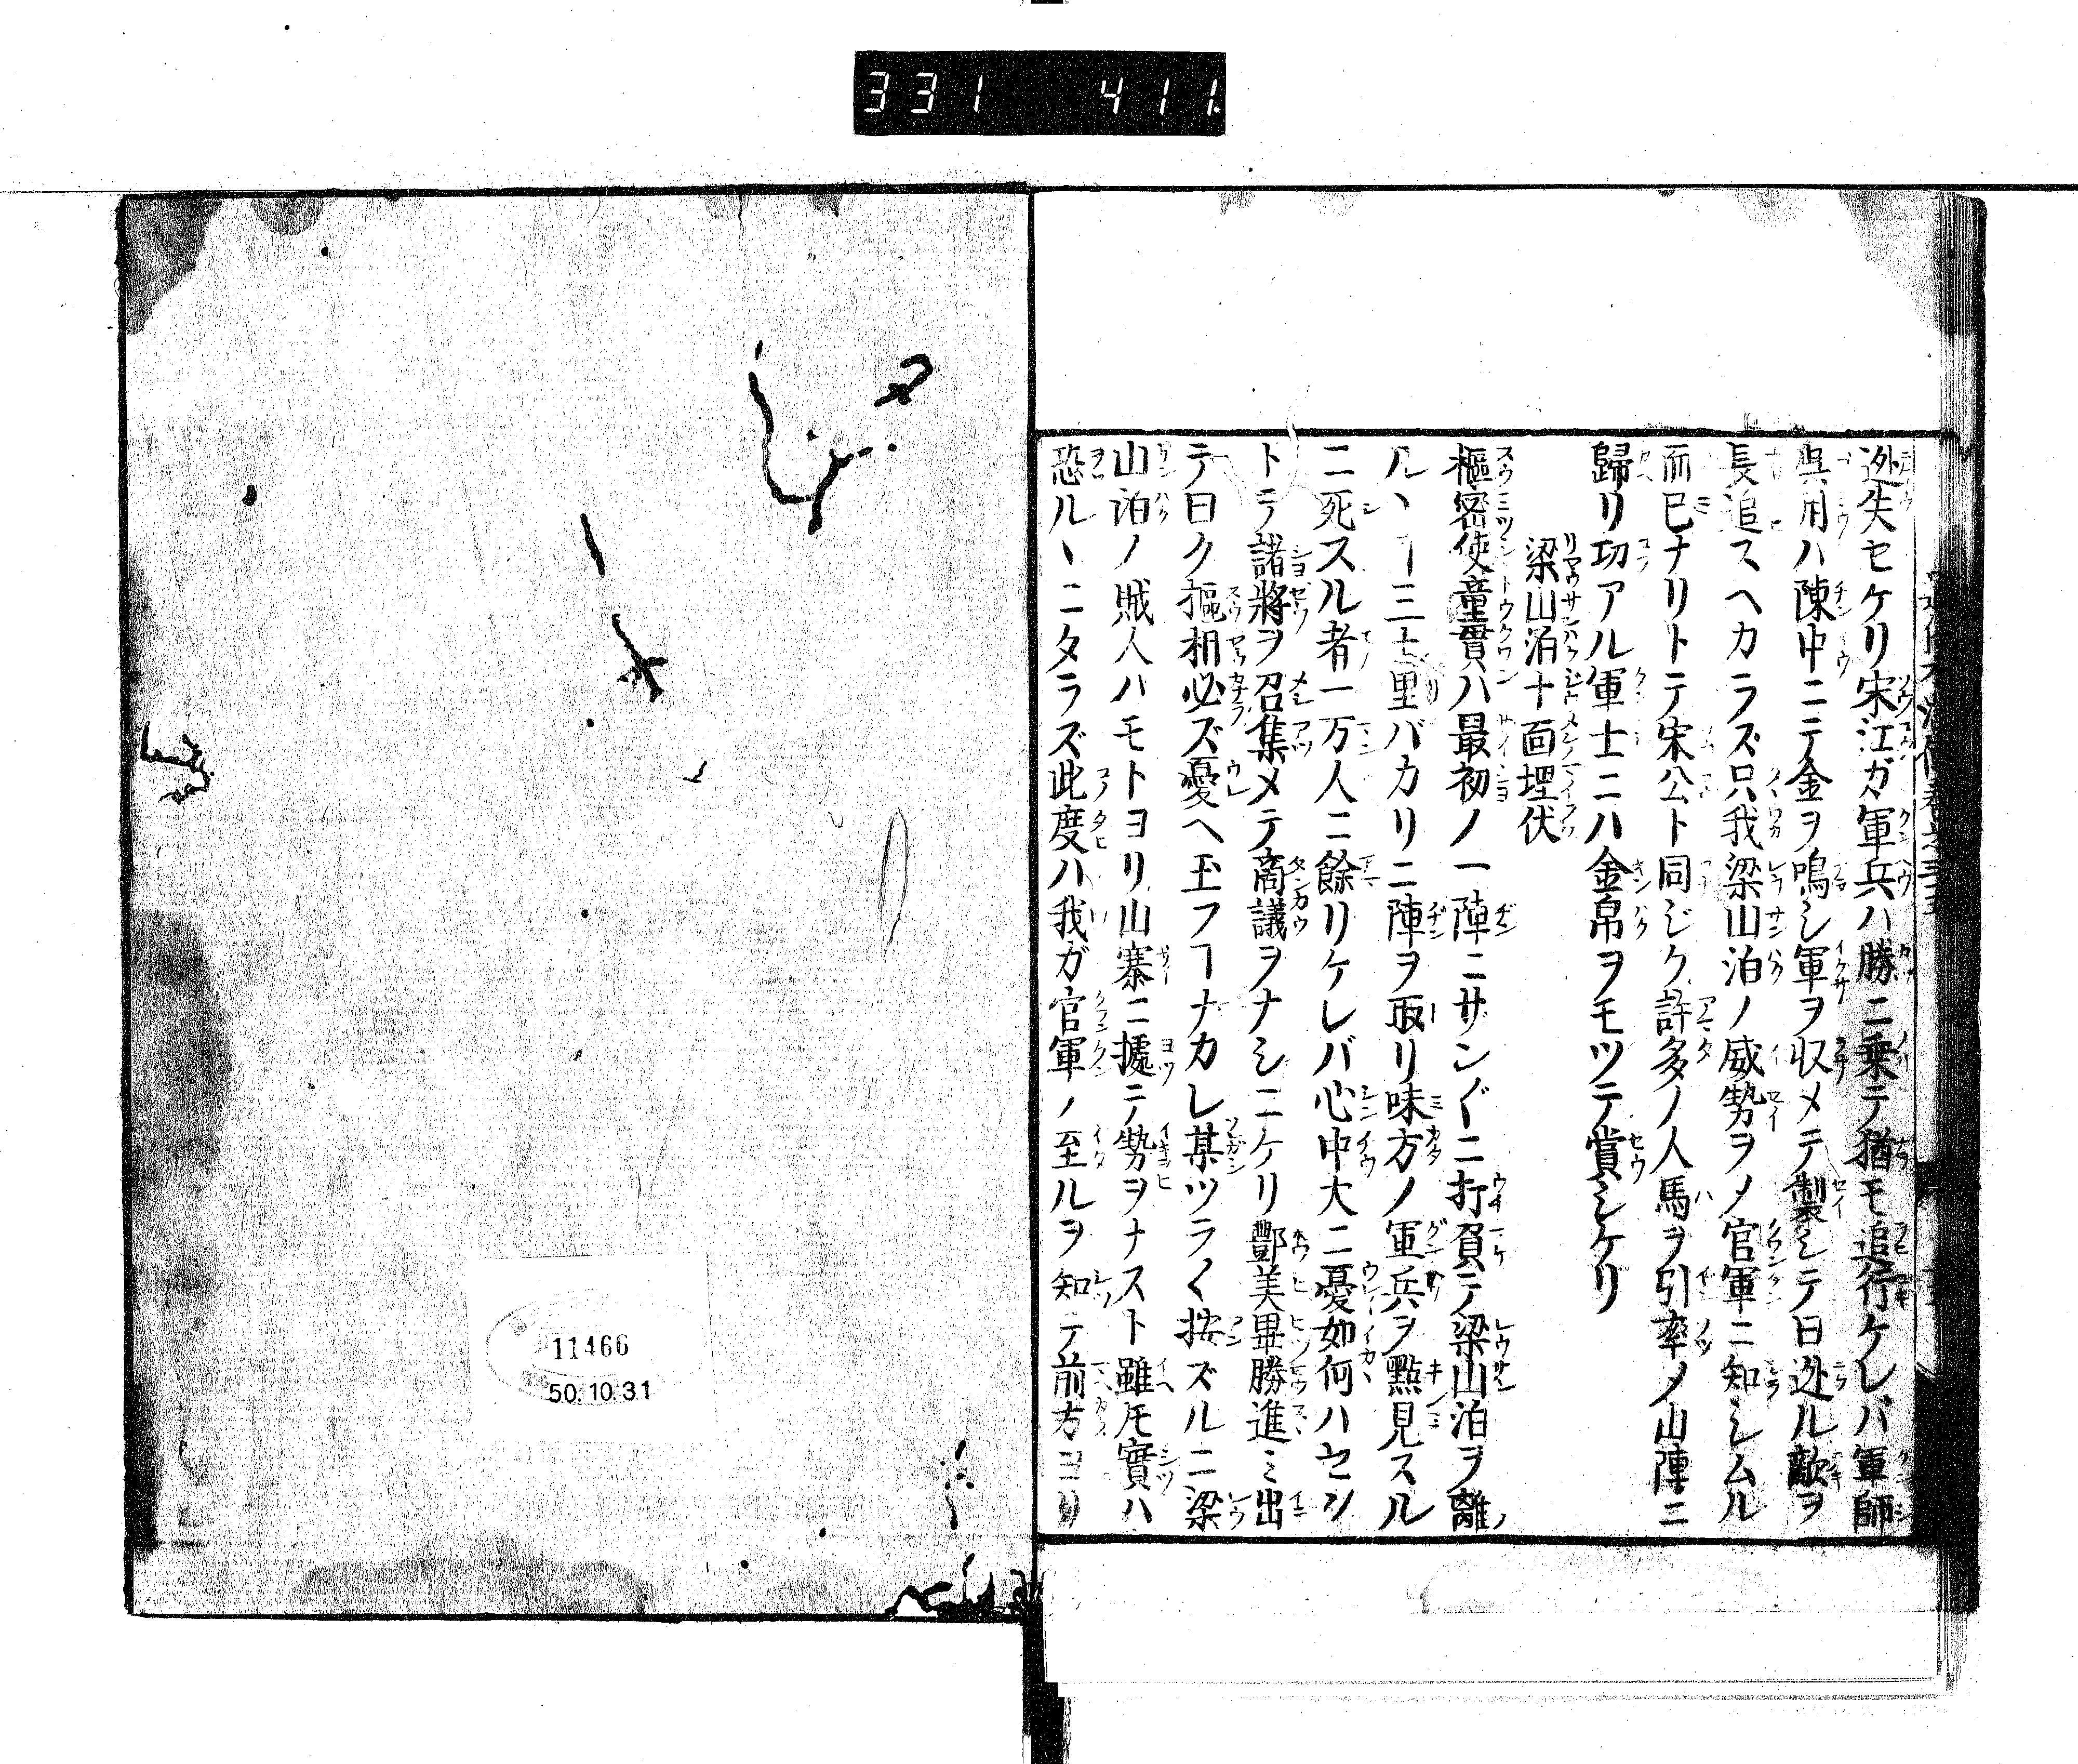 331 411
迯失セケリ宋江ガ軍兵ハ勝ニ乗テ猶モ追行ケレバ軍師
呉用ハ陳中ニテ金ヲ鳴シ軍ヲ収メテ製シテ曰迯ル敵ヲ
長追スヘカラズ只我梁山泊ノ威勢ヲメ官軍ニ知シムル
而已ナリトテ宋公ト同ジク許多ノ人馬ヲ引率メ山陣ニ
歸リ功アル軍士ニハ金帛ヲモツテ賞シケリ
梁山泊十面埋伏
樞密使童貫ハ最初ノ一陣ニサン〲ニ打負テ梁山泊ヲ離
ルヽヿ三十里バカリニ陣ヲ取リ味方ノ軍兵ヲ點見スル
ニ死スル者一万人ニ餘リケレバ心中大ニ憂如何ハセン
トテ諸將ヲ召集メテ商議ヲナシニケリ酆美畢勝進ミ出
テ曰ク樞相必ズ憂ヘ玉フヿナカレ某ツラ〱按ズルニ梁
山泊ノ賊人ハモトヨリ山寨ニ據テ勢ヲナスト雖モ實ハ
恐ルヽニタラズ此度ハ我ガ官軍ノ至ルヲ知テ前方ヨリ
11466
50.10.31